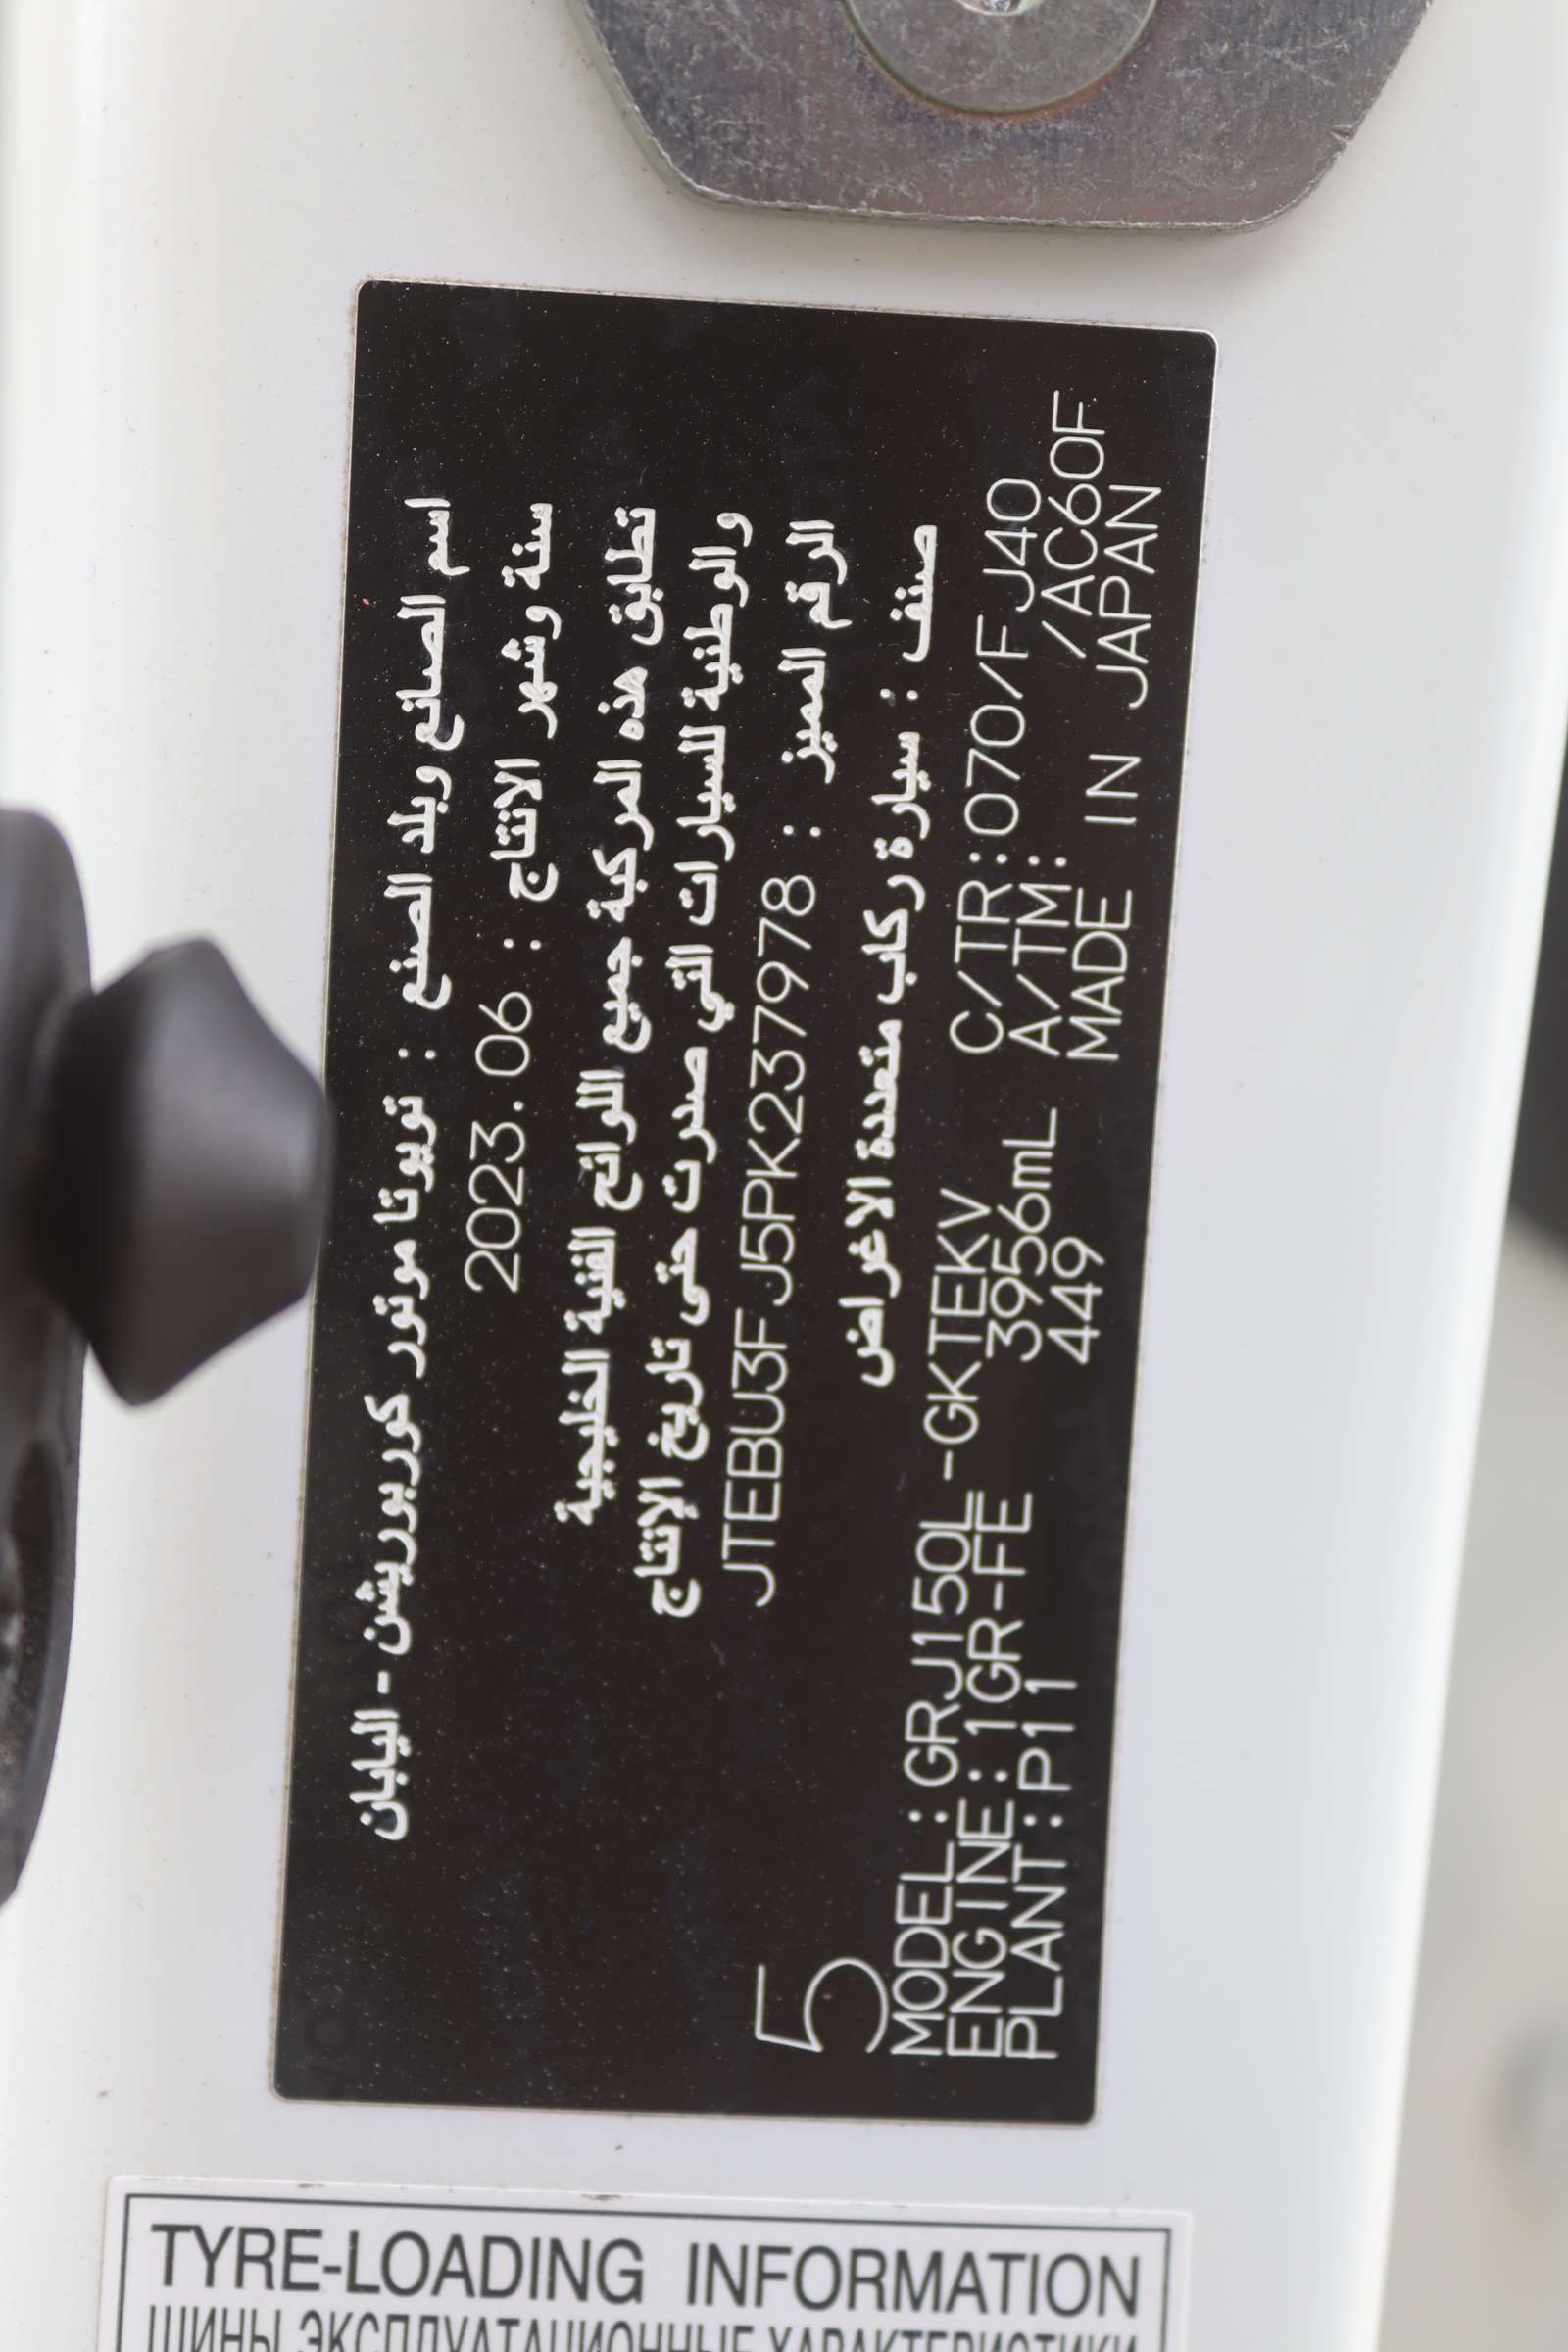 اسم الصانع وبلد الصنع : تويوتا موتور كوربوريشن - اليابان
سنة وشهر الانتاج : 2023.06
تطابق هذه المركبة جميع اللوائح الفنية الخليجية
والوطنية للسيارات التي صدرت حتى تاريخ الإنتاج
الرقم المميز : JTEBU3FJJ5PK237978
صنف : سيارة ركاب متعددة الاغراض
5
MODEL:GRJ150L-GKTEKV C/TR:070/FJ40
ENGINE:1GR-FE 3956mL A/TM: /AC60F
PLANT:P11 449 MADE IN JAPAN
TYRE-LOADING INFORMATION
ШИНЫ ЭКСПЛУАТАЦИОННЫЕ ХАРАКТЕРИСТИКИ